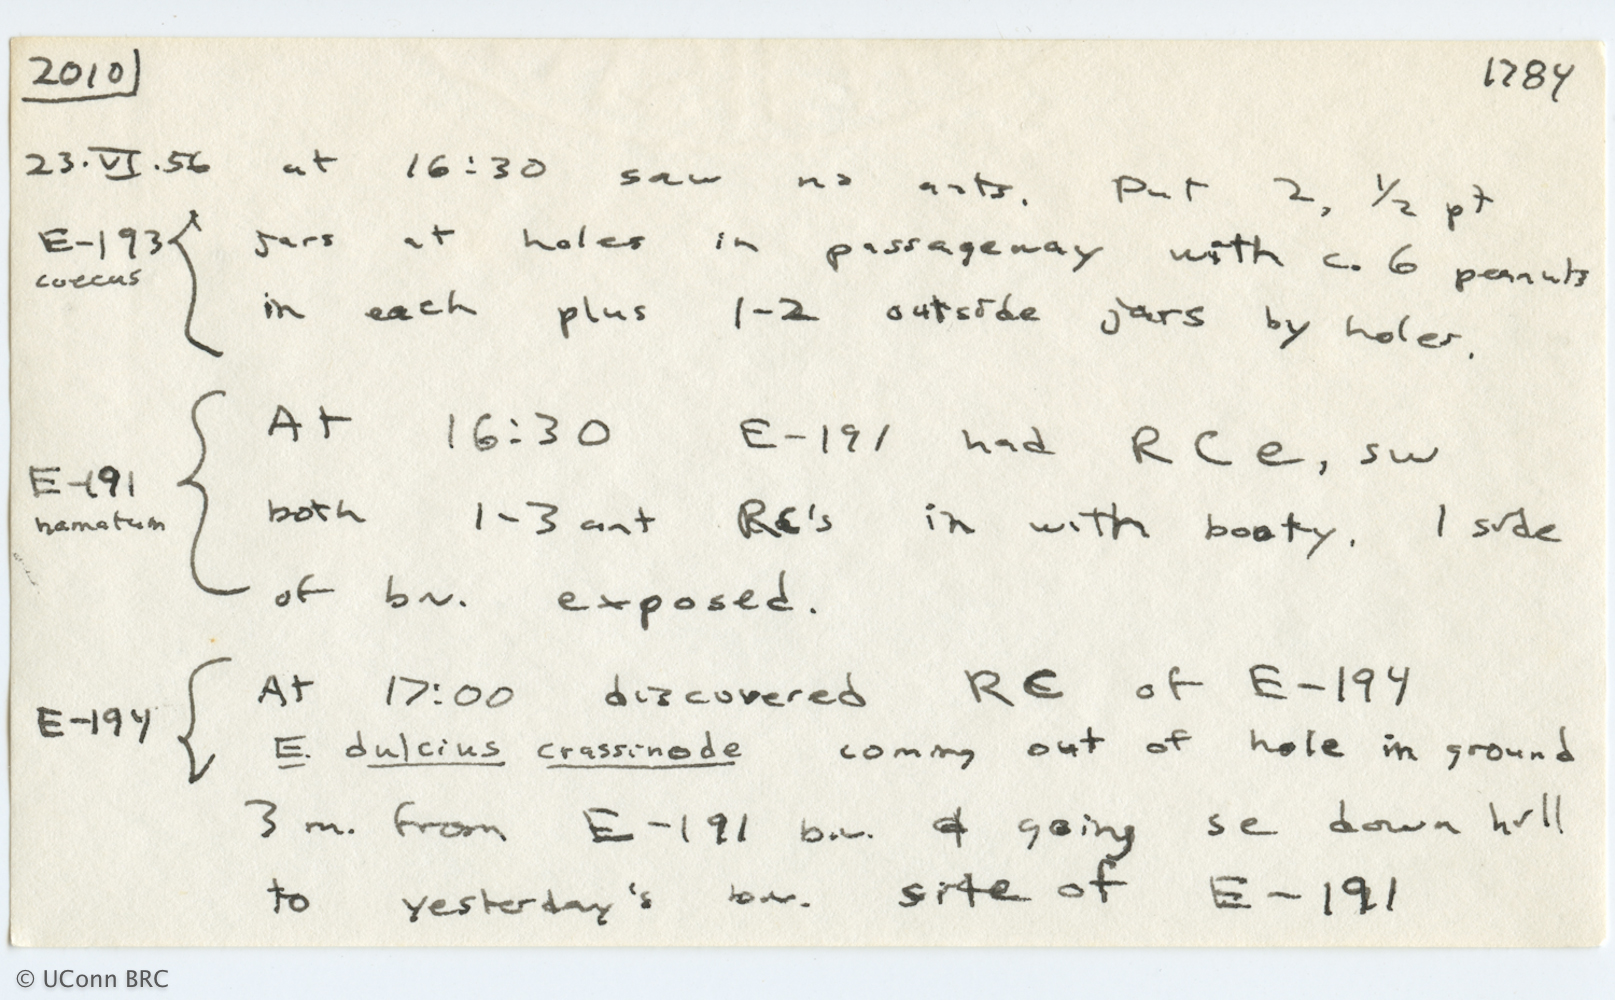 2010 1784
23.VI.56 at 16:30 saw no ants. Put 2, 1/2 pt
E-193 jars at holes in passageway with c. 6 peanuts
coecus
in each plus 1-2 outside jars by holes.
At 16:30 E-191 had RC e, sw
E-191
hamatum both 1-3 ant RC's in with booty. 1 side
of biv. exposed.
At 17:00 discovered RC of E-194
E-194
E. dulcius crassinode coming out of hole in ground
3 m. from E-191 biv. & going se down hill
to yesterday's biv. site of E-191
© UConn BRC